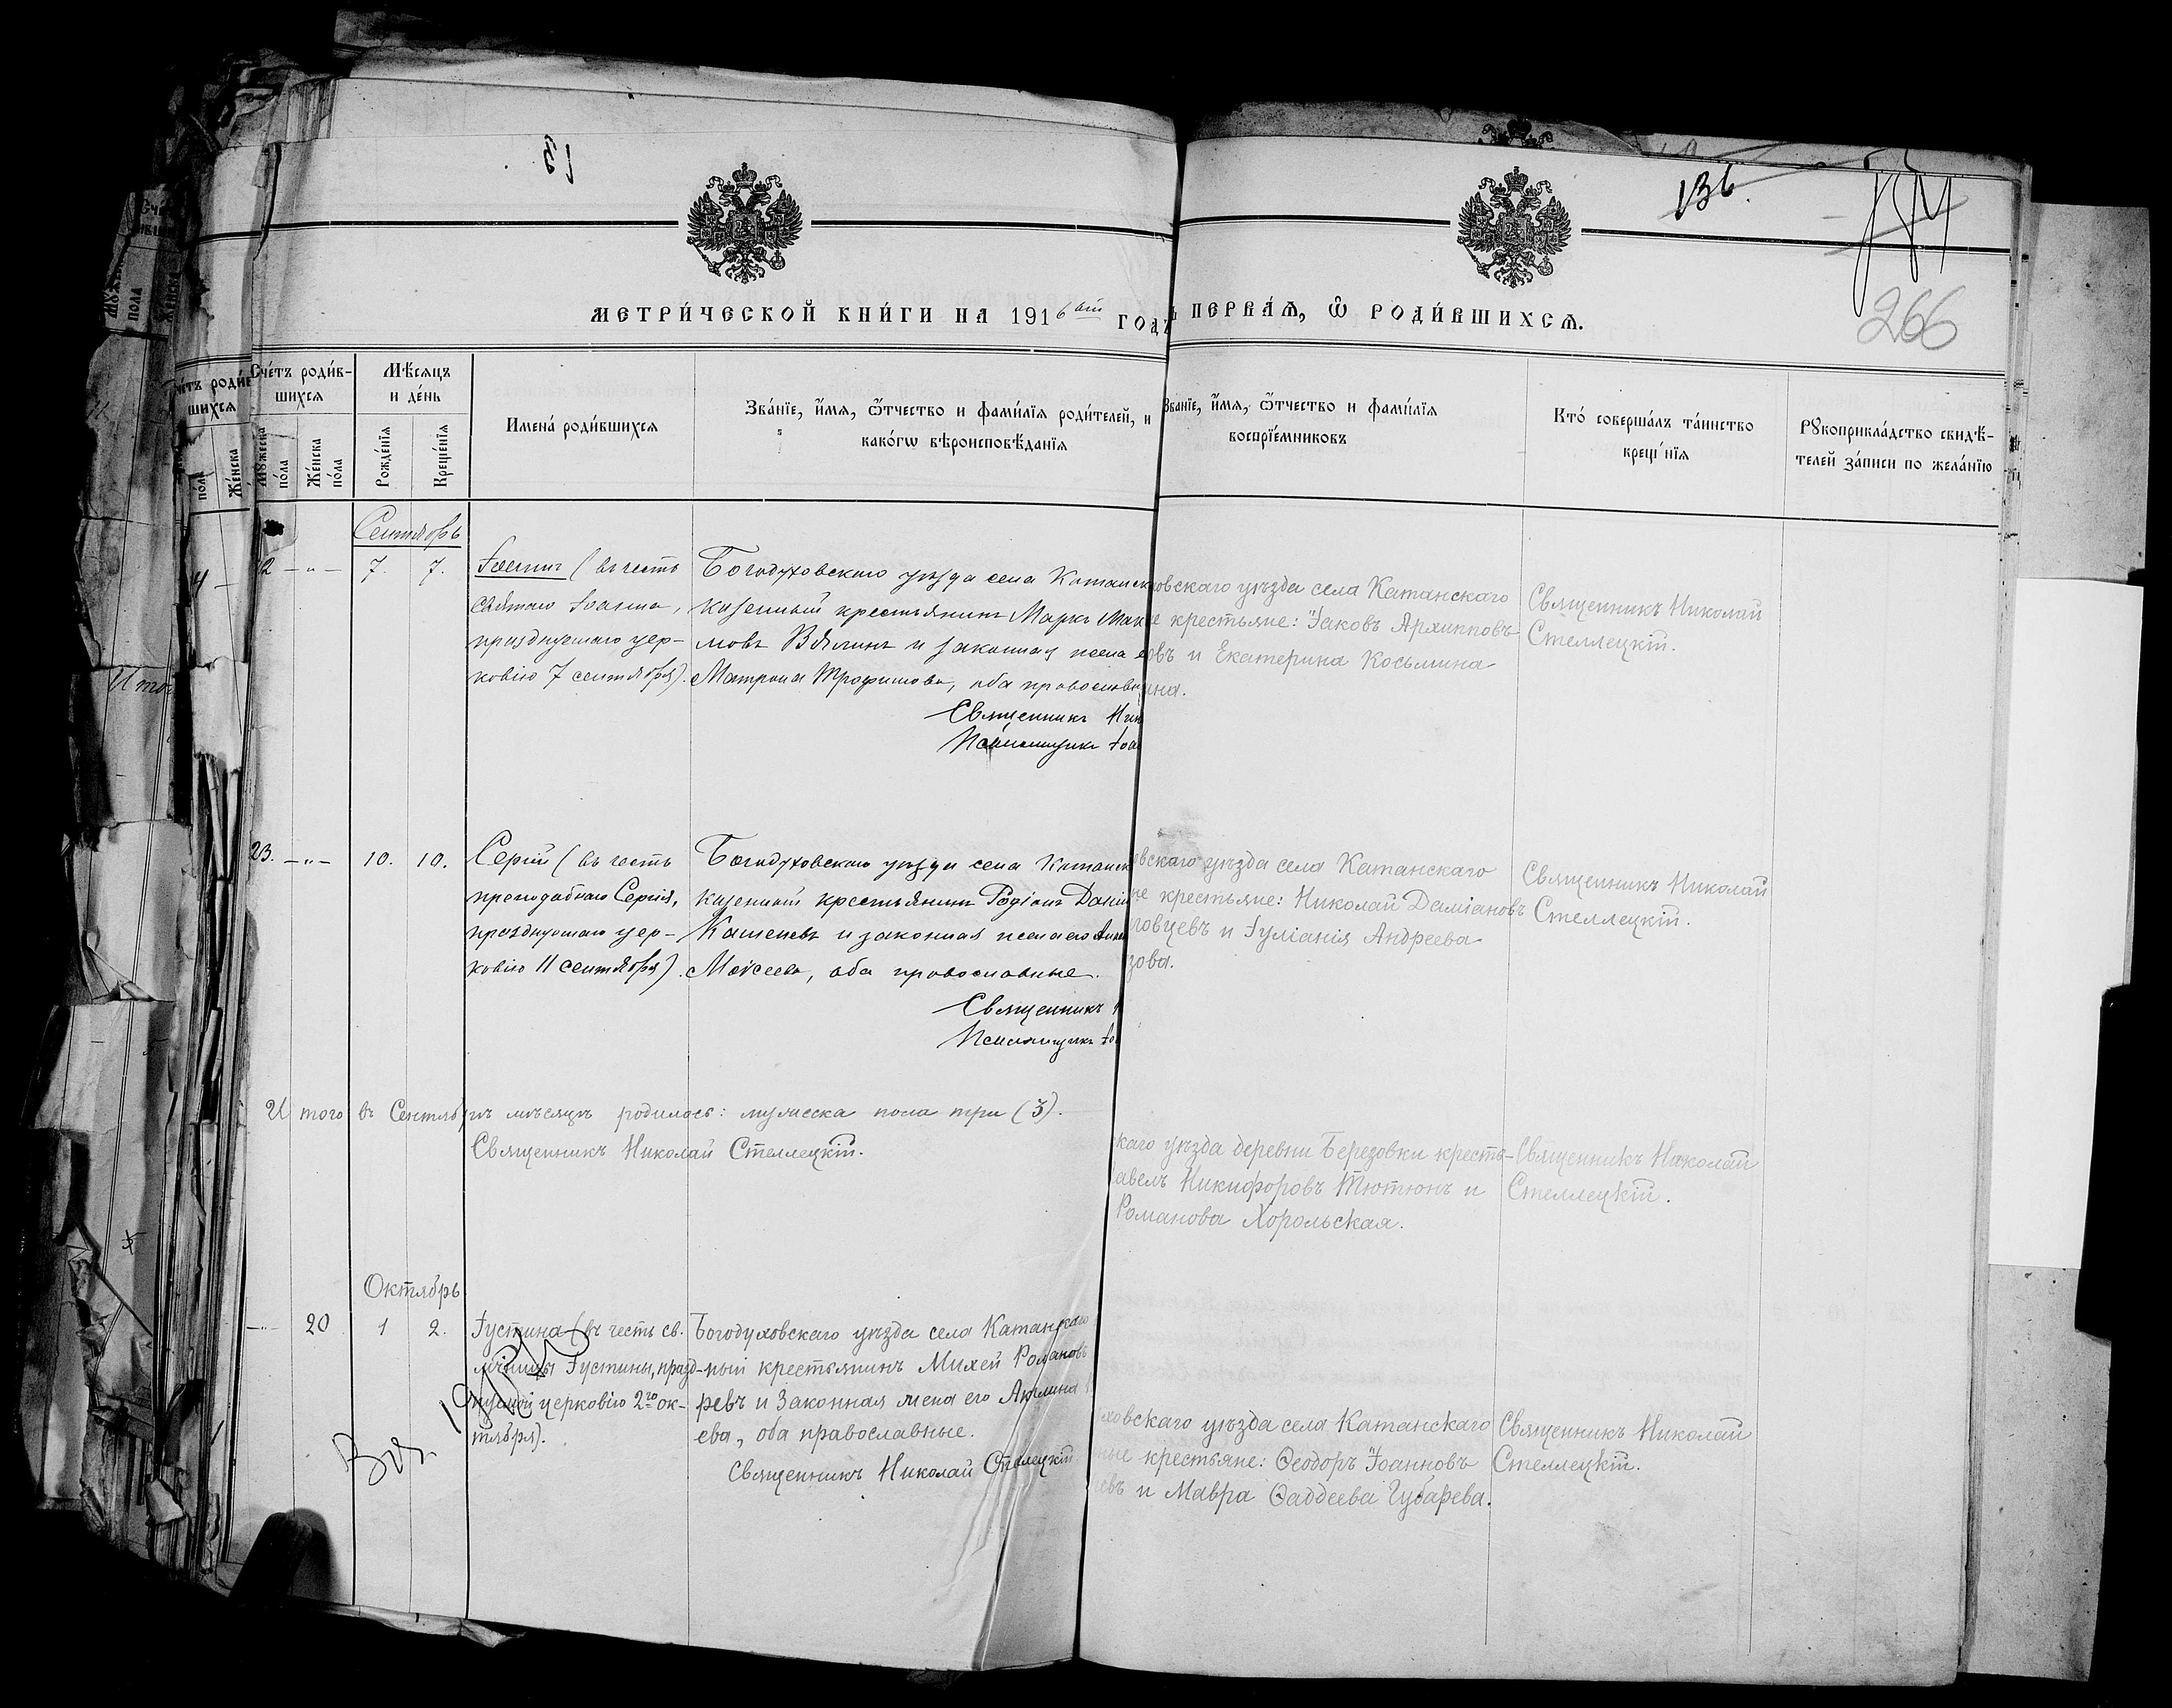 136.
266
МЕТРИ́ЧЕСКОЙ КНИ́ГИ НА 1916 ый ГОДЪ
ПЕРВА́Ѧ, Ѿ РОДИ́ВШИХСѦ.
Сче́тъ роди́в-
шихсѧ
Мѣ́сѧцъ
и де́нь
Мꙋ́жеска
по́ла
Же́нска
по́ла
Рожде́нїѧ
Креще́нїѧ
Имена̀ роди́вшихсѧ
Зва́нїе, и҆́мѧ, ѻ҆́тчество и фами́лїѧ роди́телей, и
како́гѡ вѣроисповѣ́данїѧ
Зва́нїе, и҆́мѧ, ѻ҆́тчество и фами́лїѧ
воспрїе́мниковъ
Кто̀ соверша́лъ та́инство
креще́нїѧ
Рꙋкоприкла́дство свидѣ́-
телей за́писи по жела́нїю
Сентябрь
2 — „ — 7. 7.
Іоаннъ (въ честь
святаго Іоанна,
празднуемаго цер-
ковію 7 сентября).
Богодуховскаго уѣзда села Катанск
казенный крестьянинъ Маркъ Мак
мовъ Вялинъ и законная жена е
Матрона Трофимова, оба православн
Священникъ Ник
Псаломщикъ Іоа
овскаго уѣзда села Катанскаго
е крестьяне: Іаковъ Архипповъ
овъ и Екатерина Косьмина
ина.
Священникъ Николай
Стеллецкій.
23. — „ — 10. 10.
Сергій (въ честь
преподобнаго Сергія,
празднуемаго цер-
ковію 11 сентября).
Богодуховскаго уѣзда села Катанск
казенный крестьянинъ Родіонъ Даніи
и законная жена его
Моѵсеева, оба православные.
Священникъ
Псаломщикъ Іо
овскаго уѣзда села Катанскаго
не крестьяне: Николай Даміановъ
говцевъ и Іуліанія Андреева
зова.
Священникъ Николай
Стеллецкій.
Итого въ Сентябрѣ мѣсяцѣ родилось: мужеска пола три (3).
Священникъ Николай Стеллецкій.
каго уѣзда деревни Березовки кресть-
авелъ Никифоровъ Тютюнъ и
Романова Хорольская.
Священникъ Николай
Стеллецкій.
Октябрь
— „ — 20 1 2.
Іустина (въ честь св.
мчницы Іустины, празд-
нуемой церковію 2го ок-
тября).
Богодуховскаго уѣзда села Катанскаго
ный крестьянинъ Михей Романовъ
ревъ и законная жена его Акилина
ева, оба православные.
Священникъ Николай Стеллецкій
ховскаго уѣзда села Катанскаго
ные крестьяне: Ѳеодоръ Іоанновъ
евъ и Мавра Ѳаддеева Губарева.
Священникъ Николай
Стеллецкій.